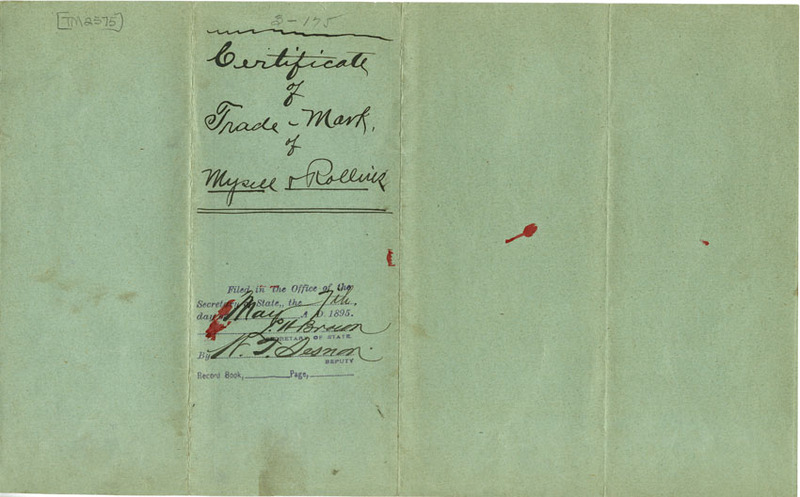 [TM2375]
3-175
Certificate
of
Trade-Mark.
of
Mysell & Rollins
Filed in the Office of the
Secretary of State, the 7th.
day of May A. D. 1895.
L. H. Brown
SECRETARY OF STATE.
By W. T. Sesnon.
DEPUTY
Record Book, Page,